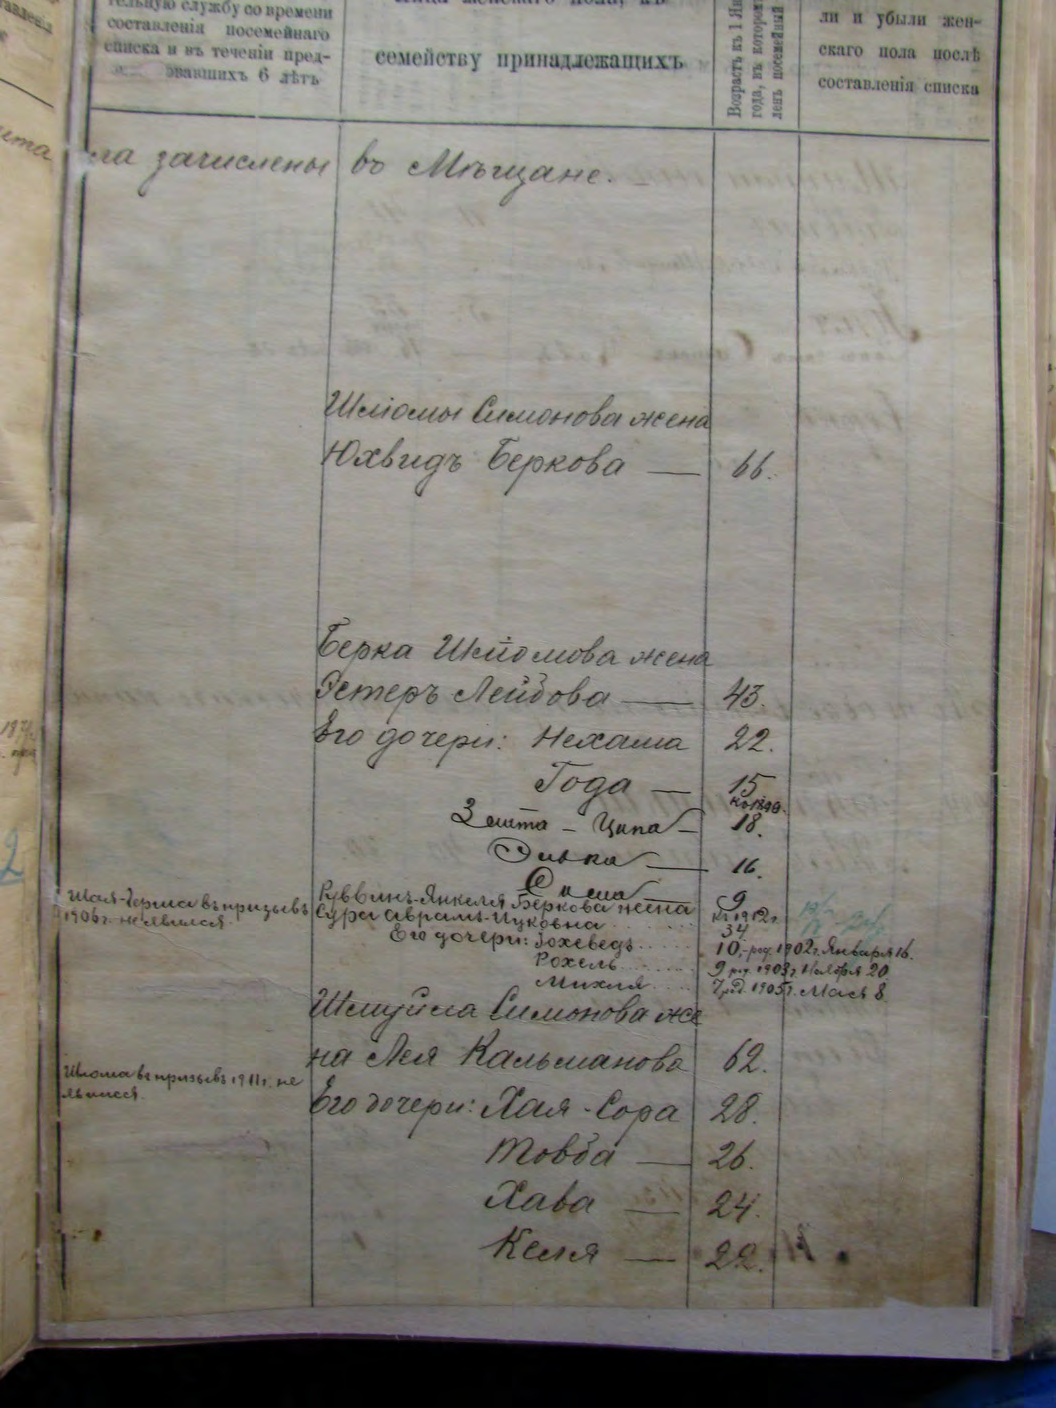 тельную службу со времени
составленія посемейнаго
списка и въ теченіи пред-
6 лѣтъ
семейству принадлежащихъ
Возрастъ къ 1 Ян
года, въ котором
ленъ посемейный
ли и убыли жен-
скаго пола послѣ
составленія списка
зачислены въ Мѣщане.
Шліомы Симонова жена
Юхвидъ Беркова — 66.
Берка Шліомова жена
Эстеръ Лейбова — 43.
Его дочери: Нехама 22.
Года — 15
Злата - Ципа - 18.
Эилька — 16.
Сима 9
Шая-Герша въ призывъ
1906 г. не явился.
Руввинъ-Янкеля Беркова жена
Сура Авраамъ-Ицковна 34
Его дочери: Іохеведъ 10, род. 1902 г. Января 16.
Рохель 9 род. 1903 г. Ноября 20
Михля 7 род. 1905 г. Мая 8
Шмуйла Симонова же
на Лея Кальманова 62.
Шлома въ призывъ 1911 г. не
явился.
Его дочери: Хая-Сора 28.
Товба — 26.
Хава — 24.
Келя — 22.